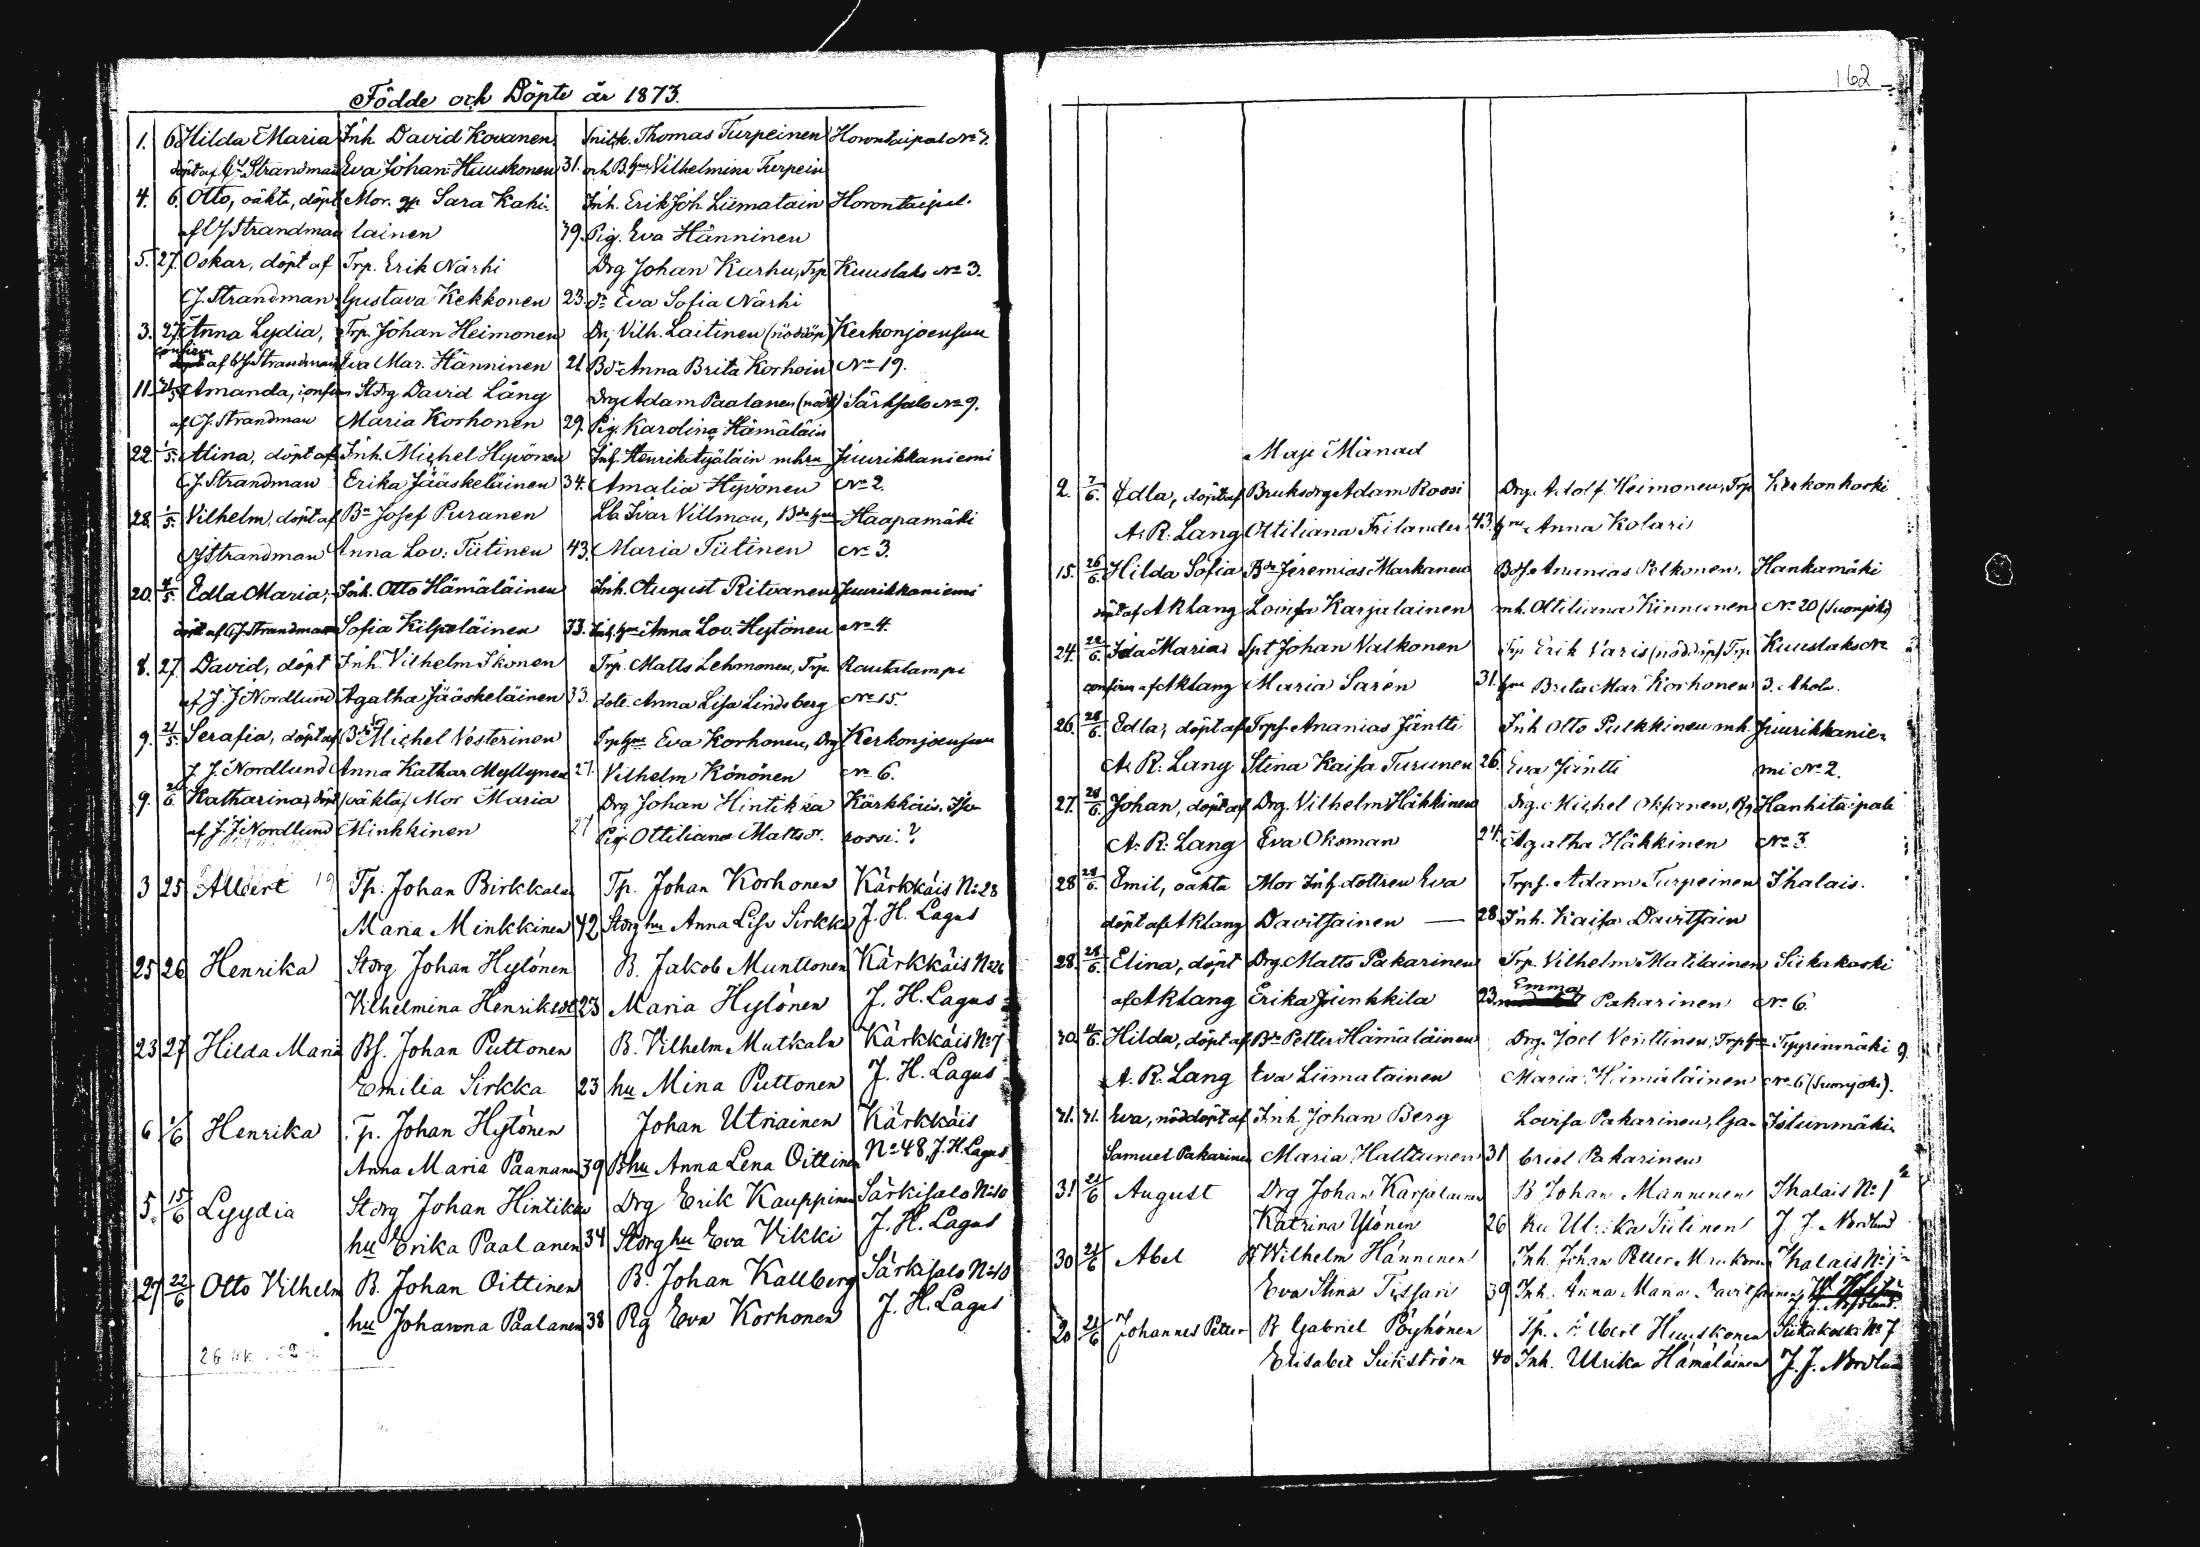 Födde och Döpte år 1873.
1. 6. Hilda Maria Inh. David Kovanen Snick. Thomas Turpeinen Horontaipal No 7.
döpt af CJ Strandman Eva Johan: Huuskonen 31. och B. hu Vilhelmina Turpein
4. 6. Otto, oäkta, döpt Mor. Sara Kahi- Inh. Erik Joh. Liimatain Horontaipal.
af CJ Strandman lainen 39. Pig. Eva Hänninen
5. 27. Oskar, döpt af Trp. Erik Närhi Drg Johan Kurhu, Trp Kuuslaks No 3.
CJ. Strandman Gustava Kekkonen 23. dr Eva Sofia Närhi
3. 27. Anna Lydia, Trp. Johan Heimonen Drg Vilh. Laitinen (nöddöp) Kerkonjoensuu
confirm af CJ Strandman Eva Mar. Hänninen 21 Bdr Anna Brita Korhoin No 19.
11. Amanda, confirm Stdrg David Lång Drg Adam Paalanen (nödd) Särkisalo No 9.
af CJ. Strandman Maria Korhonen 29. Pig. Karolina Hämäläin
22. 1/5. Mina, döpt af Inh. Michel Hyvönen Inh. Henrik mhru Juurikkaniemi
CJ Strandman Erika Jääskeläinen 34. Amalia Hyvönen No 2.
28. 1/5. Vilhelm, döpt af Bn Josef Puranen Lb Ivar Villman, Bde hu Haapamäki
CJ Strandman Anna Lov: Tiitinen 43. Maria Tiitinen No 3.
20. 4/5. Edla Maria, Inh. Otto Hämäläinen Inh. August Ritvanen Juurikkaniemi
döpt af CJ Strandman Sofia Kilpeläinen 33. Inh. hu Anna Lov. Hytönen No 4.
8. 27. David, döpt Inh. Vilhelm Ikonen Trp. Matts Lehmonen, Trp. Rautalampi
af J. J Nordlund Agatha Jääskeläinen 33. dotr. Anna Lisa Lindsberg No 15.
9. 21/5. Serafia, döpt af Bdr Michel Vesterinen Trp hu Eva Korhonen, Drg Kerkonjoensuu
J. J. Nordlund Anna Kathar Myllynen 27. Vilhelm Könönen No 6.
9. Katharina, döpt (oäkta) Mor Maria Drg Johan Hintikka Kärkkäis.
af J. J Nordlund Minkkinen 27 Pig. Ottiliana Matts dr. rossi.?
3 25 Albert Tp. Johan Birkkalan Tp. Johan Korhonen Kärkkäis No 28
Maria Minkkinen 42 Stdrg hu Anna Lisa Sirkka J. H. Lagus
25 26 Henrika Stdrg Johan Hytönen B. Jakob Munttonen Kärkkäis No 26
Vilhelmina Henriksdtr 23 Maria Hytönen J. H. Lagus
23 27 Hilda Maria Bs. Johan Puttonen B. Vilhelm Mutkala Kärkkäis No 7
Emilia Sirkka 23 hu Mina Puttonen J. H. Lagus
6 1/6 Henrika Tp. Johan Hytönen Johan Utriainen Kärkkäis
Anna Maria Paananen 39 Bhu Anna Lena Oittinen No 48, J. H. Lagus
5. 15/6 Lyydia Stdrg Johan Hintikka Drg Erik Kauppinen Särkisalo No 10
hu Erika Paalanen 34 Stdrg hu Eva Vikki J. H. Lagus
27 22/6 Otto Vilhelm B. Johan Oittinen B. Johan Kallberg Särkisalo No 10
hu Johanna Paalanen 38 Pg Eva Korhonen J. H. Lagus
162
Maji Månad
2. 7/6. Edla, döpt af Bruksdrg Adam Roosi Drg. Adolf Heimonen, Trp Kerkonkoski
A. R. Lang Ottiliana Frilander 43. hu Anna Kolari
15. 26/6. Hilda Sofia Bdr Jeremias Markanen Bds Ananias Pelkonen. Hankamäki
döpt af AR Lang Lovisa Karjalainen mh. Ottiliana Kinnunen No 20 (Suonjoki)
24. 22/6. Ida Maria Spt Johan Valkonen Trp Erik Varis (nöddöp) Trp Kuuslaks No
confirm af AR Lang Maria Sarén 31. hu Brita Mar. Korhonen 3. Ahola.
26. 28/6. Edla, döpt af Trps. Ananias Jäntti Inh Otto Pulkkinen mh. Juurikkanie-
A. R. Lang Stina Kaisa Turunen 26. Eva Jäntti mi No 2.
27. 28/6. Johan, döpt af Drg. Vilhelm Häkkinen Drg. Michel Oksanen, Hanhitaipale
A. R. Lang Eva Oksman 24. Agatha Häkkinen No 3.
28 28/6. Emil, oäkta Mor Inh. dottren Eva Trps. Adam Turpeinen Ihalais.
döpt af AR Lang Davitsainen — 28. Inh. Kaisa Davitsain
28. 28/6. Elina, döpt Drg. Matts Pakarinen Trp. Vilhelm Matilainen Siikakoski
af AR Lang Erika Juinkkila 23. Emma Pakarinen No 6.
30. Hilda, döpt af Bdr Petter Hämäläinen Drg. Joel Venttinen, Trp hu Tyyrinmäki
A. R. Lang Eva Liimatainen Maria Hämäläinen No 6 (Suonjoki).
31. 31. Eva, nöddöpt af Inh Johan Berg Lovisa Pakarinen, Ga- Istunmäki
Samuel Pakarinen Maria Halttunen 31 briel Pakarinen
31 21/6 August Drg Johan Karjalainen B Johan Manninen Ihalais No 1
Katrina Ylönen 26 hu Ulrika Tiitinen J. J. Nordlund
30 21/6 Abel Wilhelm Hänninen Inh. Johan Petter Ihalais No 1
Eva Stina Tissari 39 Inh. Anna Maria Davitsainen J. J. Nordlund.
20 21/6 Johannes Petter B Gabriel Pöyhönen Tp. Albert Huuskonen Siikakoski No 7
Elisabet Siikström 40 Inh. Ulrika Hämäläinen J. J. Nordlun